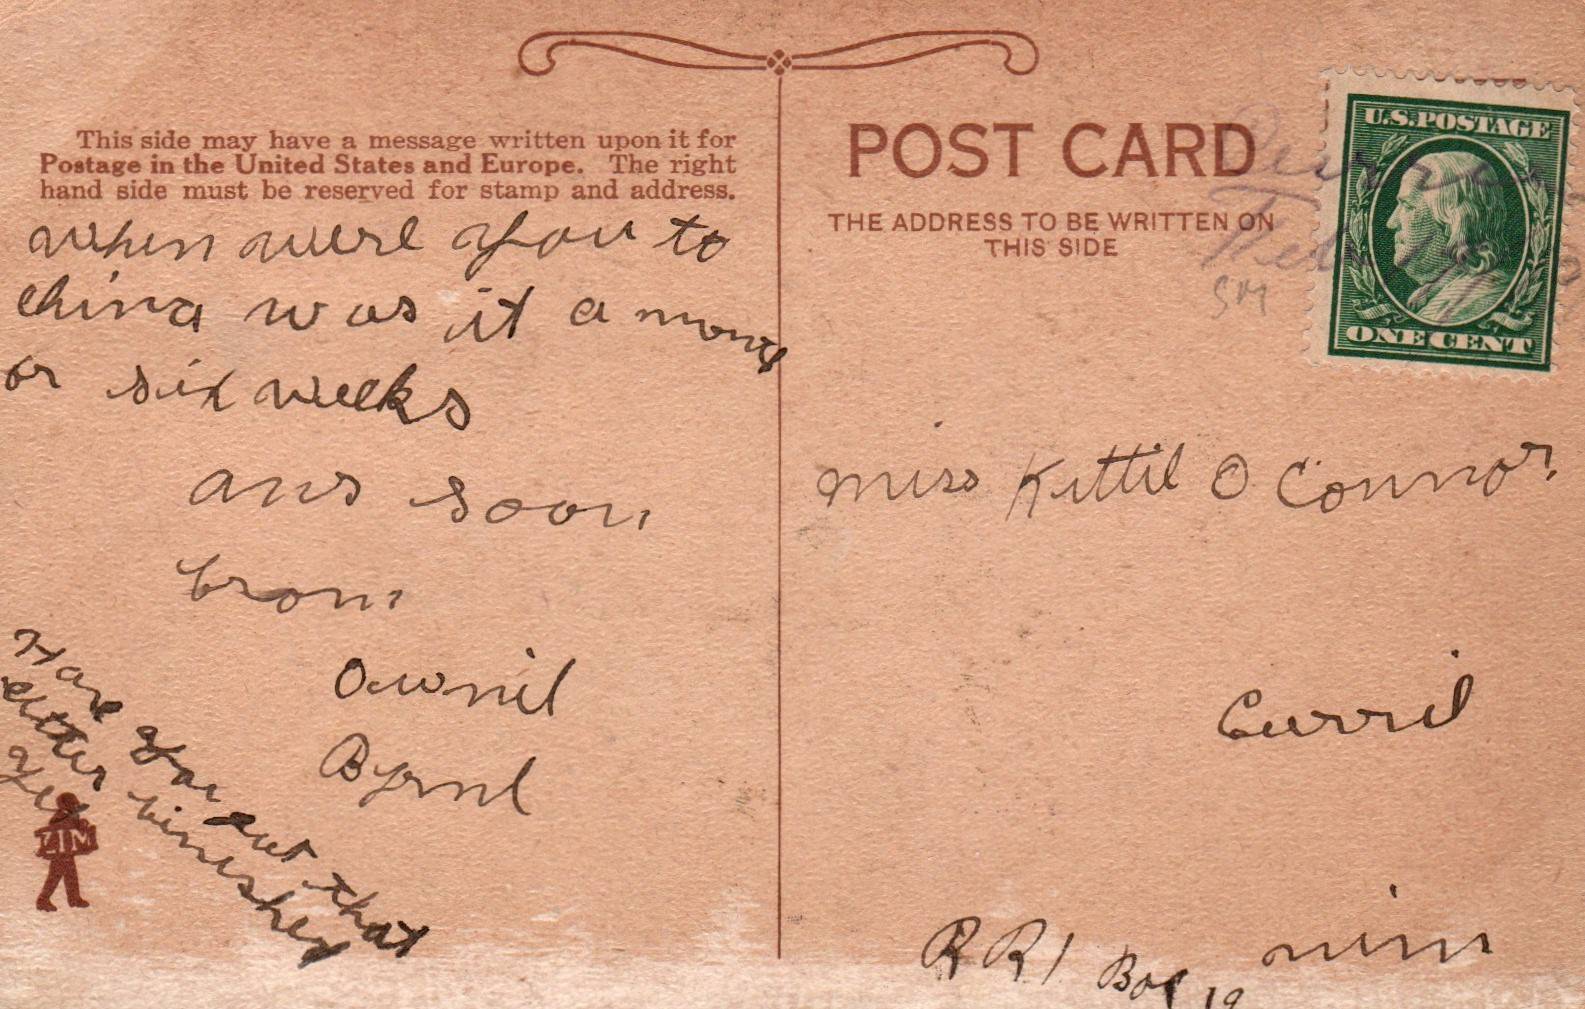 This side may have a message written upon it for
Postage in the United States and Europe. The right
hand side must be reserved for stamp and address.
when were you to
china was it a mont
or six weeks
ans soon
from
Byrne
Have you got that
letter finished
yet
ZIM
POST CARD
THE ADDRESS TO BE WRITTEN ON
THIS SIDE
U.S.POSTAGE
ONE CENT
Currie
Feb
Miss Kittie O Connor
Currie
minn
RR1 Box 19